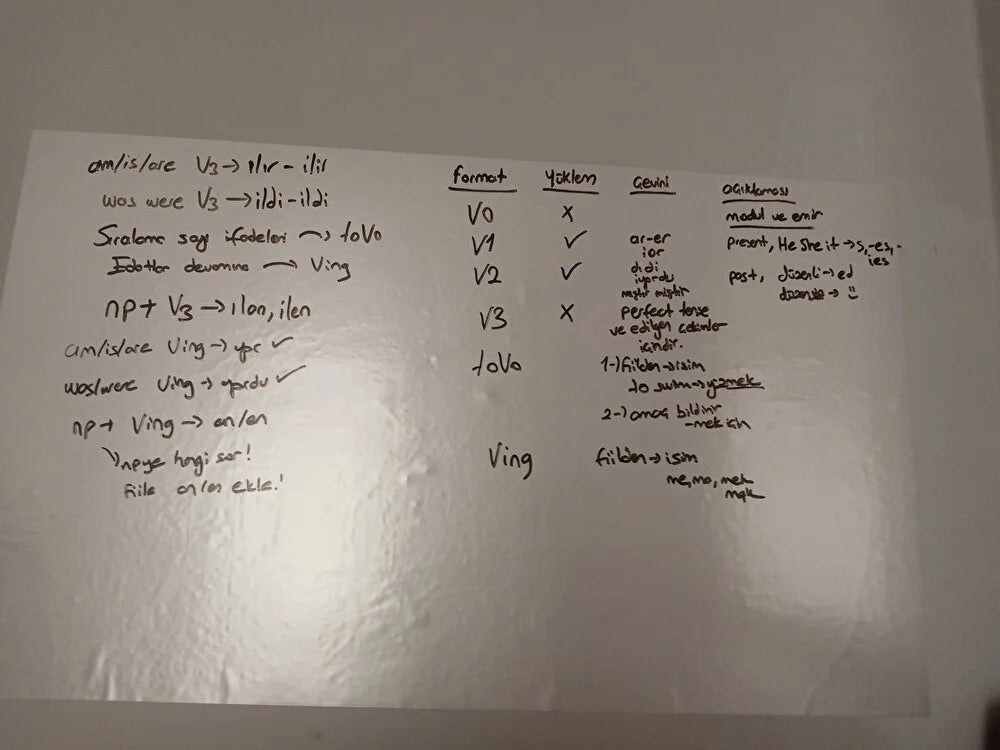 am/is/are V3 → ılır - ilir
was were V3 → ildi - ildi
Sıralama sayı ifadeleri → toVo
Edatlar devamına → Ving
np + V3 → ılan, ilen
am/is/are Ving → ✓
was/were Ving → ✓
np + Ving → an/en
npye hangi sor!
fiile an/en ekle!
format yüklem çeviri açıklaması
V0 x modul ve emir
V1 ✓ ar-er present, He She it → s, -es, -
ior ies
V2 ✓ dıdi past, düzenli → ed
iyordu
mıştır miştir
V3 x perfect tense
ve edilgen çekimler
içindir.
toVo 1-) fiilden → isim
to swim → yüzmek
2-) amaç bildirir
-mek için
Ving fiilden → isim
me, ma, mek
mak